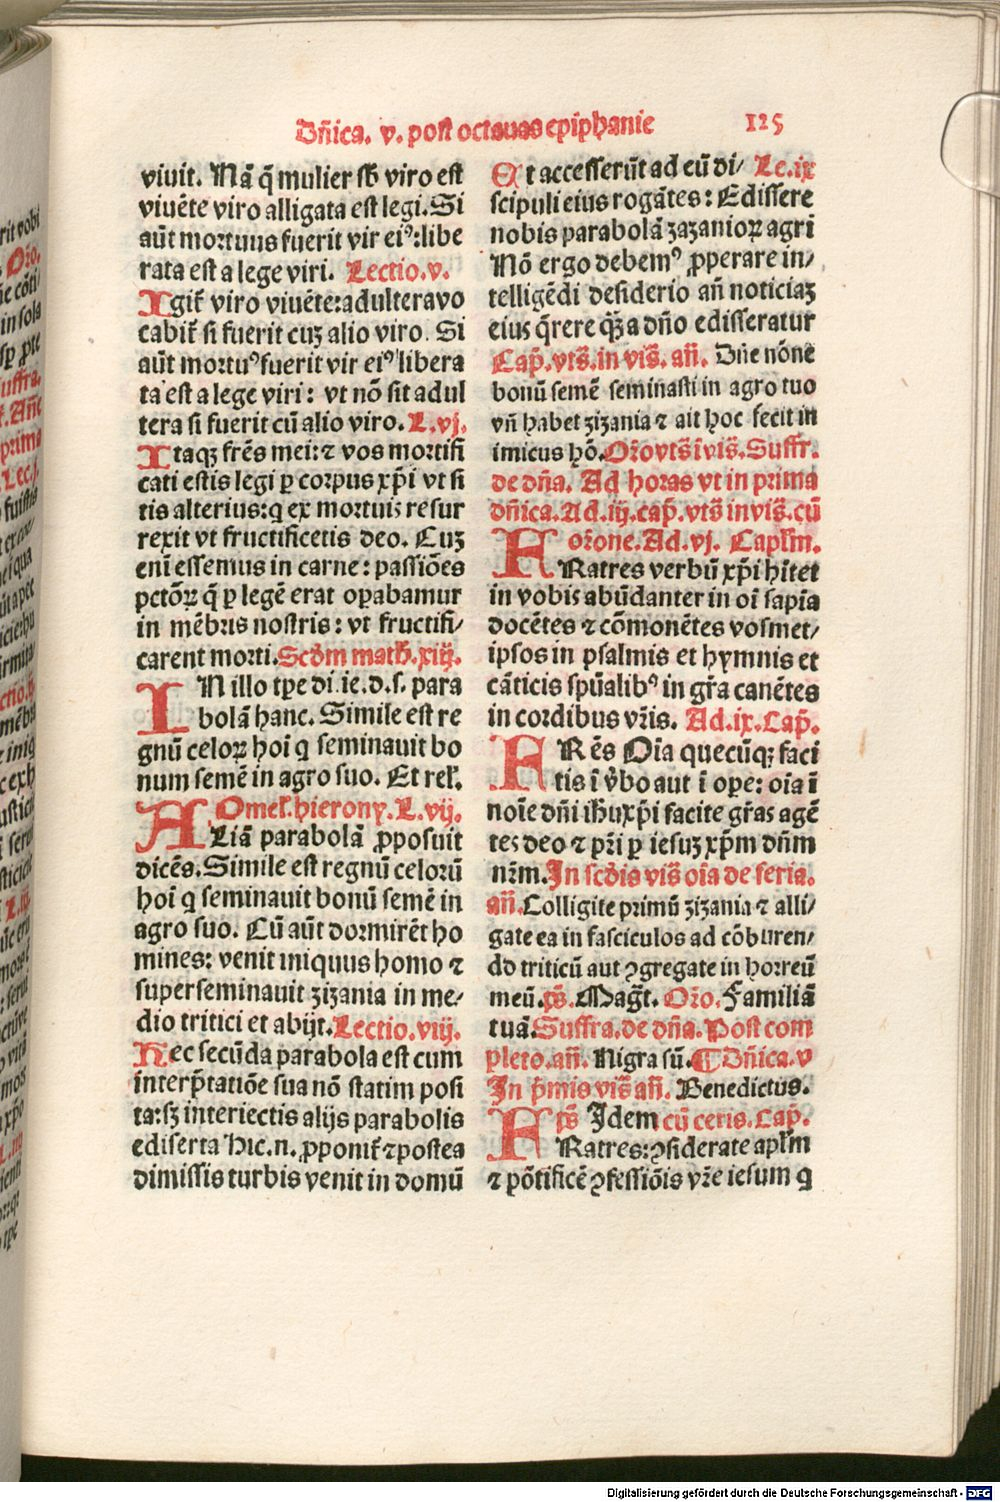 Dñica. v. post octauas epiphanie 125
viuit. Nã q̃ mulier sb̃ viro est
viuẽte viro alligata est legi. Si
aũt mortuus fuerit vir eiꝰ: libe
rata est a lege viri. Lectio. v.
Igit̃ viro viuẽte: adultera vo
cabit̃ si fuerit cuʒ alio viro. Si
aũt mortuꝰ fuerit vir eiꝰ libera
ta est a lege viri: vt nõ sit adul
tera si fuerit cũ alio viro. L. vj.
Itaqʒ frẽs mei: ⁊ vos mortifi
cati estis legi ꝑ corpus xp̃i vt si
tis alterius: q ex mortuis resur
rexit vt fructificetis deo. Cuʒ
enĩ essemus in carne: passiões
pctõꝝ q̃ ꝑ legẽ erat oꝑabamur
in mẽbris nostris: vt fructifi/
carent morti. Scd̃m math̃. xiij.
IN illo tꝑe di. ie. d. s. para
bolã hanc. Simile est re
gnũ celoꝝ hoĩ q seminauit bo
num semẽ in agro suo. Et rel̃.
Omel̃. hierony. L. vij.
ALiã parabolã ꝓposuit
dicẽs. Simile est regnũ celorũ
hoĩ q seminauit bonũ semẽ in
agro suo. Cũ aũt dormirẽt ho
mines: venit iniquus homo ⁊
superseminauit zizania in me/
dio tritici et abijt. Lectio. viij.
Hec secũda parabola est cum
interp̃tatiõe sua nõ statim posi
ta: sʒ interiectis alijs parabolis
ediserta Hic. n. ꝓponit̃ ⁊ postea
dimissis turbis venit in domũ
Et accesserũt ad eũ di/ Le. ix
scipuli eius rogãtes: Edissere
nobis parabolã zazanioꝝ agri
Nõ ergo debemꝰ ꝓperare in/
telligẽdi desiderio añ noticiaʒ
eius q̃rere qʒ̃ a dño edisseratur
Cap̃. vts̃. in vis̃. añ. Dñe nõne
bonũ semẽ seminasti in agro tuo
vñ habet zizania ⁊ ait hoc fecit in
imicus hõ. Or̃o vts̃ ĩ vis̃. Suffr.
de dña. Ad horas vt in prima
dñica. Ad. iij. cap̃. vts̃ in vis̃. cũ
or̃one. Ad. vj. Capl̃m.
FRatres verbũ xp̃i hĩtet
in vobis abũdanter in oĩ sapĩa
docẽtes ⁊ cõmonẽtes vosmet/
ipsos in psalmis et hymnis et
cãticis spũalibꝰ in gr̃a canẽtes
in cordibus vr̃is. Ad. ix. Cap̃.
FRẽs Oĩa quecũqʒ faci
tis ĩ v̉bo aut ĩ oꝑe: oĩa ĩ
noĩe dñi ih̃u xp̃i facite gr̃as agẽ
tes deo ⁊ pr̃i ꝑ iesuʒ xp̃m dñm
nr̃m. In scd̃is vis̃ oĩa de feria.
añ. Colligite primũ zizania ⁊ alli/
gate ea in fasciculos ad cõburen/
dũ triticũ aut ꝯgregate in horreũ
meũ. ps̃. Mag̃t. Or̃o. Familiã
tuã. Suffra. de dña. Post com
pleto. añ. Nigra sũ. ¶ Dñica. v
In p̃mis vis̃ añ. Benedictus.
ps̃ Idem cũ ceris. Cap̃.
FRatres: ꝯsiderate apl̃m
⁊ põtificẽ ꝯfessiõis vr̃e iesum q
Digitalisierung gefördert durch die Deutsche Forschungsgemeinschaft - DFG